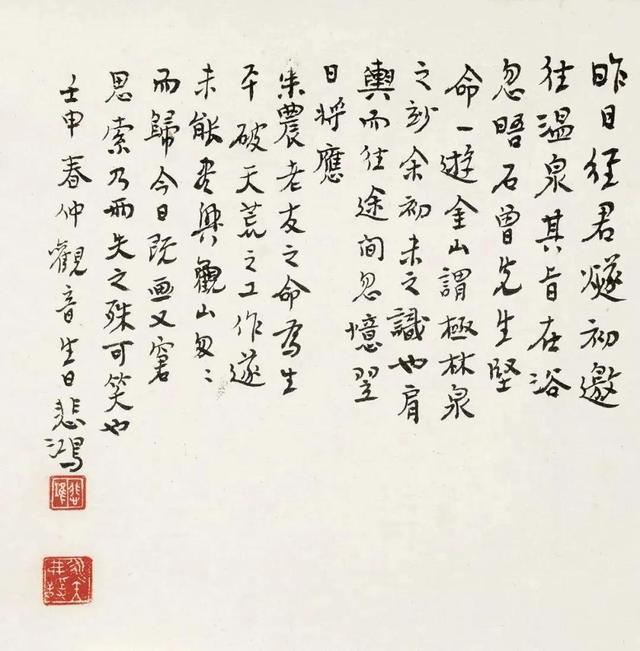 昨日径君燧初邀
往温泉其旨在浴
忽晤石曾先生堅
命一遊金山謂極林泉
之妙余初未之識也肩
輿而往途間忽憶翌
日將應
朱農老友之命為生
平破天荒之工作遂
未能盡興觀山匆〻
而歸今日既画又窘
思索乃兩失之殊可笑也
壬申春仲觀音生日悲鴻